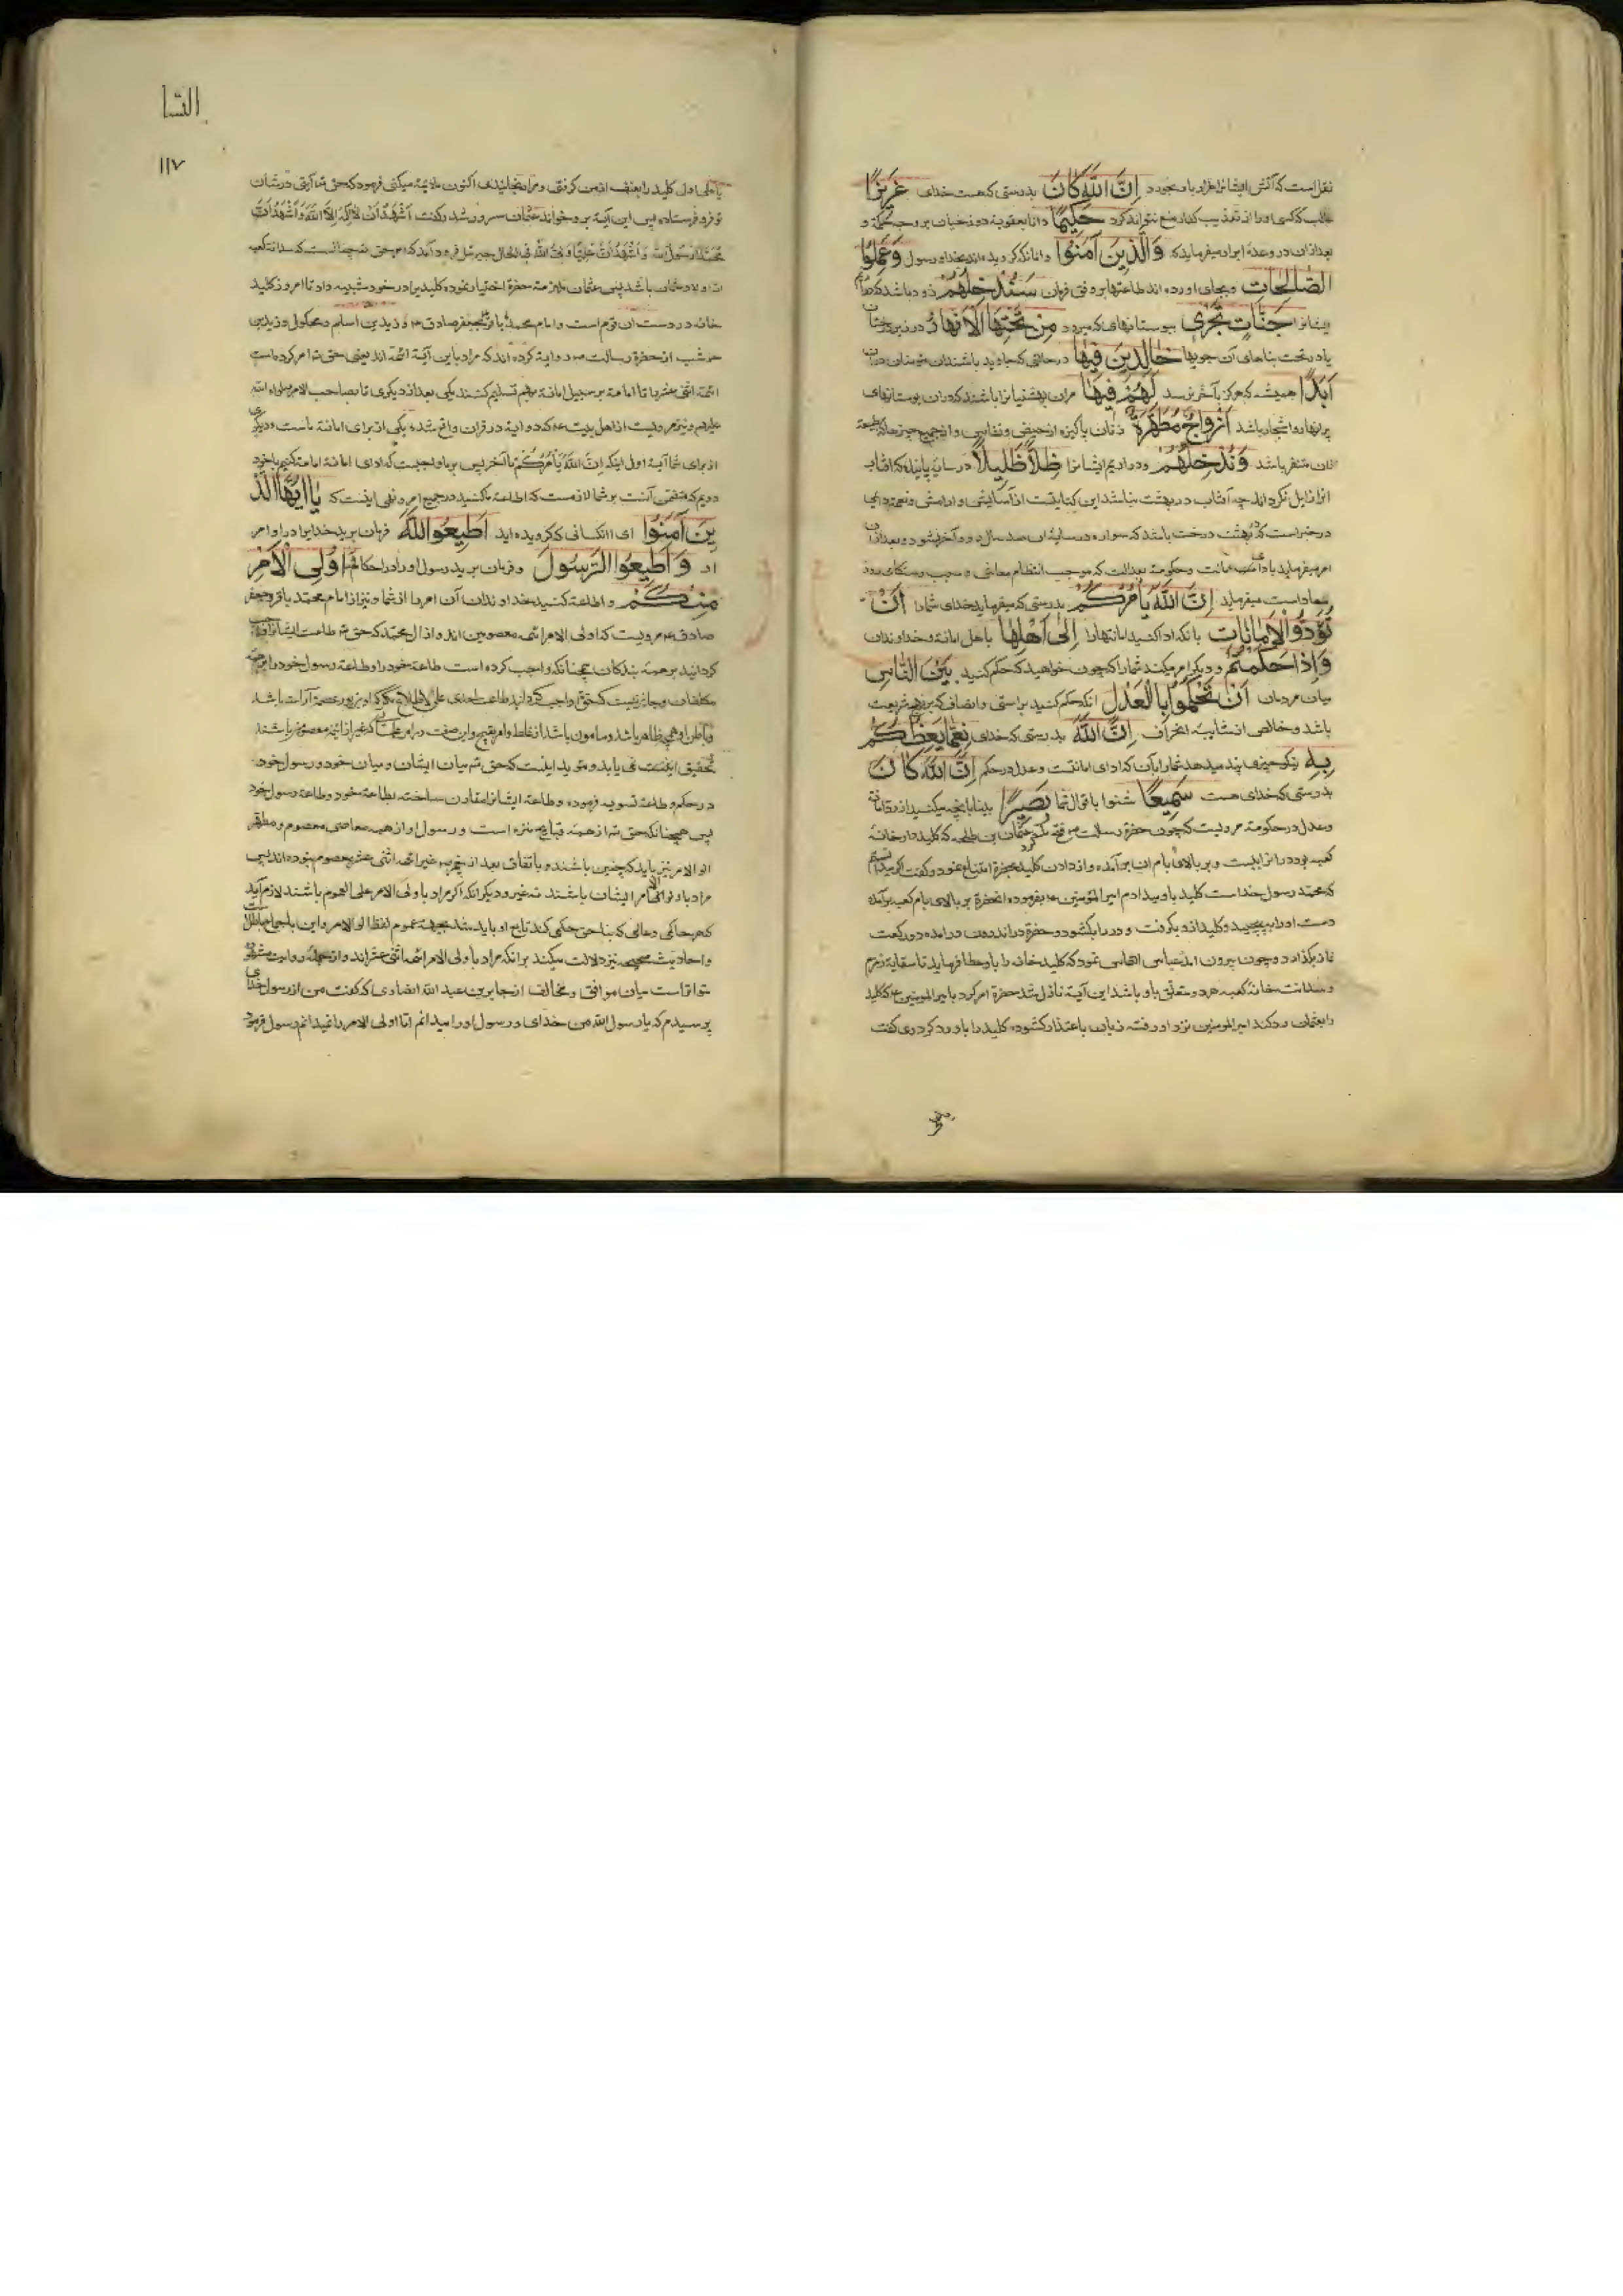 نقل است که آتش ایشانرا هزار بار بخورد إِنَّ اللَّهَ كَانَ بدرستی که هست خدای عَزِيزًا
غالب که کسی او را از تعذیب کفار منع نتواند کرد حَكِيمًا دانا بعقوبة دوزخیان بر وجه حکمة و
بعد از ان در وعدهٔ ابرار میفرماید که وَالَّذِينَ آمَنُوا و انانکه کرویده اند بخدا و رسول وَعَمِلُوا
الصَّالِحَاتِ و بجای آورده اند طاعتها بر وفق فرمان سَنُدْخِلُهُمْ زود باشد که
ایشانرا جَنَّاتٍ تَجْرِي ببوستانهای که میرود مِنْ تَحْتِهَا الْأَنْهَارُ در زیر درختان
یا در تحت بناهای آن جویها خَالِدِينَ فِيهَا در حالتی که جاوید باشندان مؤمنان دران
أَبَدًا همیشه که هرکز بآخر نرسد لَهُمْ فِيهَا مران بهشتیانرا باشند که دران بوستانهای
پر انهار و اشجار باشد أَزْوَاجٌ مُطَهَّرَةٌ زنان پاکیزه از حیض و نفاس و از جمیع چیزها که طبیعة
ازان متنفر باشد وَنُدْخِلُهُمْ و در آریم ایشانرا ظِلًّا ظَلِيلًا در سایهٔ پاینده که افتاب
انرا زایل نکرداند چه آفتاب در بهشت نباشد این کنایتست از آسایش و آرامش و نعمة دایمی
در خبر است که در بهشت درخت باشد که سواره در سایهٔ ان صد سال رود و آخر نشود و بعد ازان
امر میفرماید باداء امانت و حکومة بعدالت که موجب انتظام معاش و سبب رستکاری روز
معاد است میفرماید إِنَّ اللَّهَ يَأْمُرُكُمْ بدرستی که میفرماید خدای شمارا أَنْ
تُؤَدُّوا الْأَمَانَاتِ بانکه ادا کنید امانتهارا إِلَى أَهْلِهَا باهل امانة و خداوندان
وَإِذَا حَكَمْتُمْ و دیکر امر میکند شمارا که چون خواهید که حکم کنید بَيْنَ النَّاسِ
میان مردمان أَنْ تَحْكُمُوا بِالْعَدْلِ انکه حکم کنید براستی و انصاف که بر نهج شریعت
باشد و خالص از شایبهٔ انحراف إِنَّ اللَّهَ بدرستی که خدای نِعِمَّا يَعِظُكُمْ
بِهِ نیکو چیزی پند میدهد شمارا بآن که ادای امانتست و عدل در حکم إِنَّ اللَّهَ كَانَ
بدرستی که خدای هست سَمِيعًا شنوا باقوال شما بَصِيرًا بینا بانچه میکنید از رد امانة
و عدل در حکومة مرویست که چون حضرة رسالت ص فتح مکه کرد عثمان بن طلحه که کلیددار خانهٔ
کعبه بود در را ببست و بر بالای بام ان برآمده و از دادن کلید بحضرة امتناع نمود و کفت اکر میدانستم
که محمد رسول خداست کلید باو میدادم امیرالمؤمنین ع بفرموده انحضرة بر بالای بام کعبه برآمده
دست او را بپیچید و کلید ازو بکرفت و در را بکشود و حضرة در اندرون در امده دو رکعت
نماز بکذارد و چون بیرون امد عباس التماس نمود که کلید خانه را باو عطا فرماید تا سقایهٔ زمزم
و سدانت خانهٔ کعبه هر دو متعلق باو باشد این آیة نازل شد حضرة امر کرد بامیرالمؤمنین ع که کلید
را بعثمان رد کند امیرالمومنین نزد او رفته زبان باعتذار کشود و کلید را باو رد کرد وی کفت
النسا
١١٧
یا علی اول کلید را بعنف از من کرفتی و مرا رنجانیدی اکنون ملایمة میکنی فرمود که حق تع آیتی در شان
تو فرو فرستاده پس این آیة برو خواند عثمان مسرور شد و کفت أَشْهَدُ أَنْ لَا إِلَهَ إِلَّا اللَّهُ وَأَشْهَدُ أَنَّ
مُحَمَّدًا رَسُولُ اللَّهِ وَأَشْهَدُ أَنَّ عَلِيًّا وَلِيُّ اللَّهِ فی الحال جبرئیل فرود آمد که امر حق چنانست که سدانت کعبه
در اولاد عثمان باشد پس عثمان ملازمة حضرة اختیار نموده کلید برادر خود شیبه داد تا امروز کلید
خانه در دست ان قوم است و امام محمد باقر و جعفر صادق ع و زید بن اسلم و مکحول و زید بن
حوشب از حضرة رسالت ص روایة کرده اند که مراد باین آیهٔ ائمه اند یعنی حق تع امر کرده است
ائمه اثنی عشر را تا امامة بر سبیل امانة بهم تسلیم کنند یکی بعد از دیکری تا بصاحب الامر صلوات الله
علیهم و نیز مرویست از اهل بیت ع که دو آیة در قران واقع شده یکی از برای امانة ماست و دیکری
از برای شما آیهٔ اول اینکه إِنَّ اللَّهَ يَأْمُرُكُمْ تا آخر پس بر ما واجبست که ادای امانة امامة کنیم
دویم که متضمن آنست بر شما لازمست که اطاعة ما کنید در جمیع امر و نهی اینست که يَا أَيُّهَا الَّذِ
ينَ آمَنُوا ای انکسانی که کرویده اید أَطِيعُوا اللَّهَ فرمان برید خدایرا در اوامر
او وَأَطِيعُوا الرَّسُولَ و فرمان برید رسول او را در احکام وَأُولِي الْأَمْرِ
مِنْكُمْ و اطاعة کنید خداوندان آن امر را از شما و نیز از امام محمد باقر و جعفر
صادق ع مرویست که اولی الامر ائمه معصومین اند از آل محمد که حق تع طاعت ایشانرا واجب
کردانید بر همه بندکان همچنانکه واجب کرده است طاعة خود را و طاعة رسول خود را بر همه
مکلفان و جایز نیست که حق تع واجب کرداند طاعت احدی علی الاطلاق مکر که او بزیور عصمة آراسته باشد
و باطن او همچو ظاهر باشد و مامون باشد از غلط و امر قبیح و این صفت در امرا و علما که غیر از ائمه معصومین باشند
تحقیق نمی یابد و مؤید اینست که حق تع میان ایشان و میان خود و رسول خود
در حکم و طاعة تسویه فرموده و طاعة ایشانرا مقارن ساخته بطاعة خود و طاعة رسول خود
پس همچنانکه حق تع از همه قبایح منزه است و رسول او از همه معاصی معصوم و مطهر
الو الامر نیز باید که چنین باشند و باتفاق بعد از پیغمبر غیر ائمه اثنی عشر معصوم نبوده اند پس
مراد باولو الامر ایشان باشند نه غیر و دیکر انکه اکر مراد باولی الامر علی العموم باشند لازم آید
که هر حاکمی و عالمی که بناحق حکمی کند تابع او باید شد بجهة عموم لفظ الو الامر و این باجماع باطلست
و احادیث صحیحه نیز دلالت میکند برانکه مراد باولی الامر ائمه اثنی عشراند و ازجمله روایت مشهوره
متواتر است میان موافق و مخالف از جابر بن عبد الله انصاری که کفت من از رسول خدای
پرسیدم که یا رسول الله من خدای و رسول او را میدانم اما اولی الامر را نمیدانم رسول فرمود